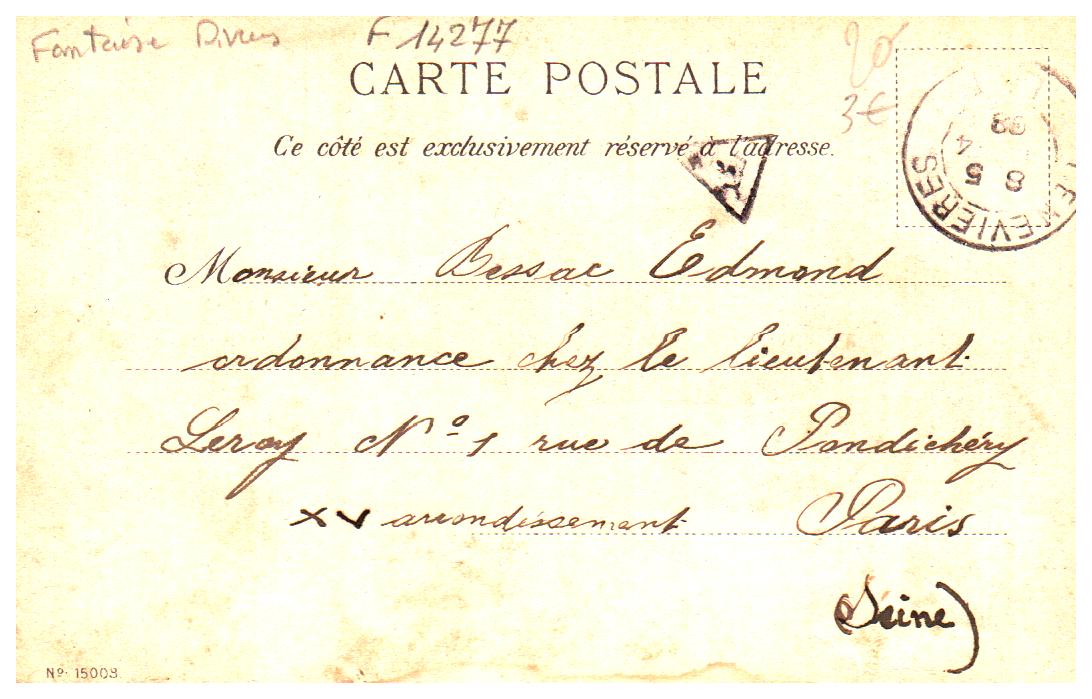 Fontaine Divers F 14277 20
3€
CARTE POSTALE
Ce côté est exclusivement réservé à l'adresse.
8 5
4 99
EVIERES
Monsieur Bessac Edmond
ordonnance chez le lieutenant
Leroy Nº 1 rue de Pondichéry
XV arrondissement Paris
(Seine)
Nº 15003